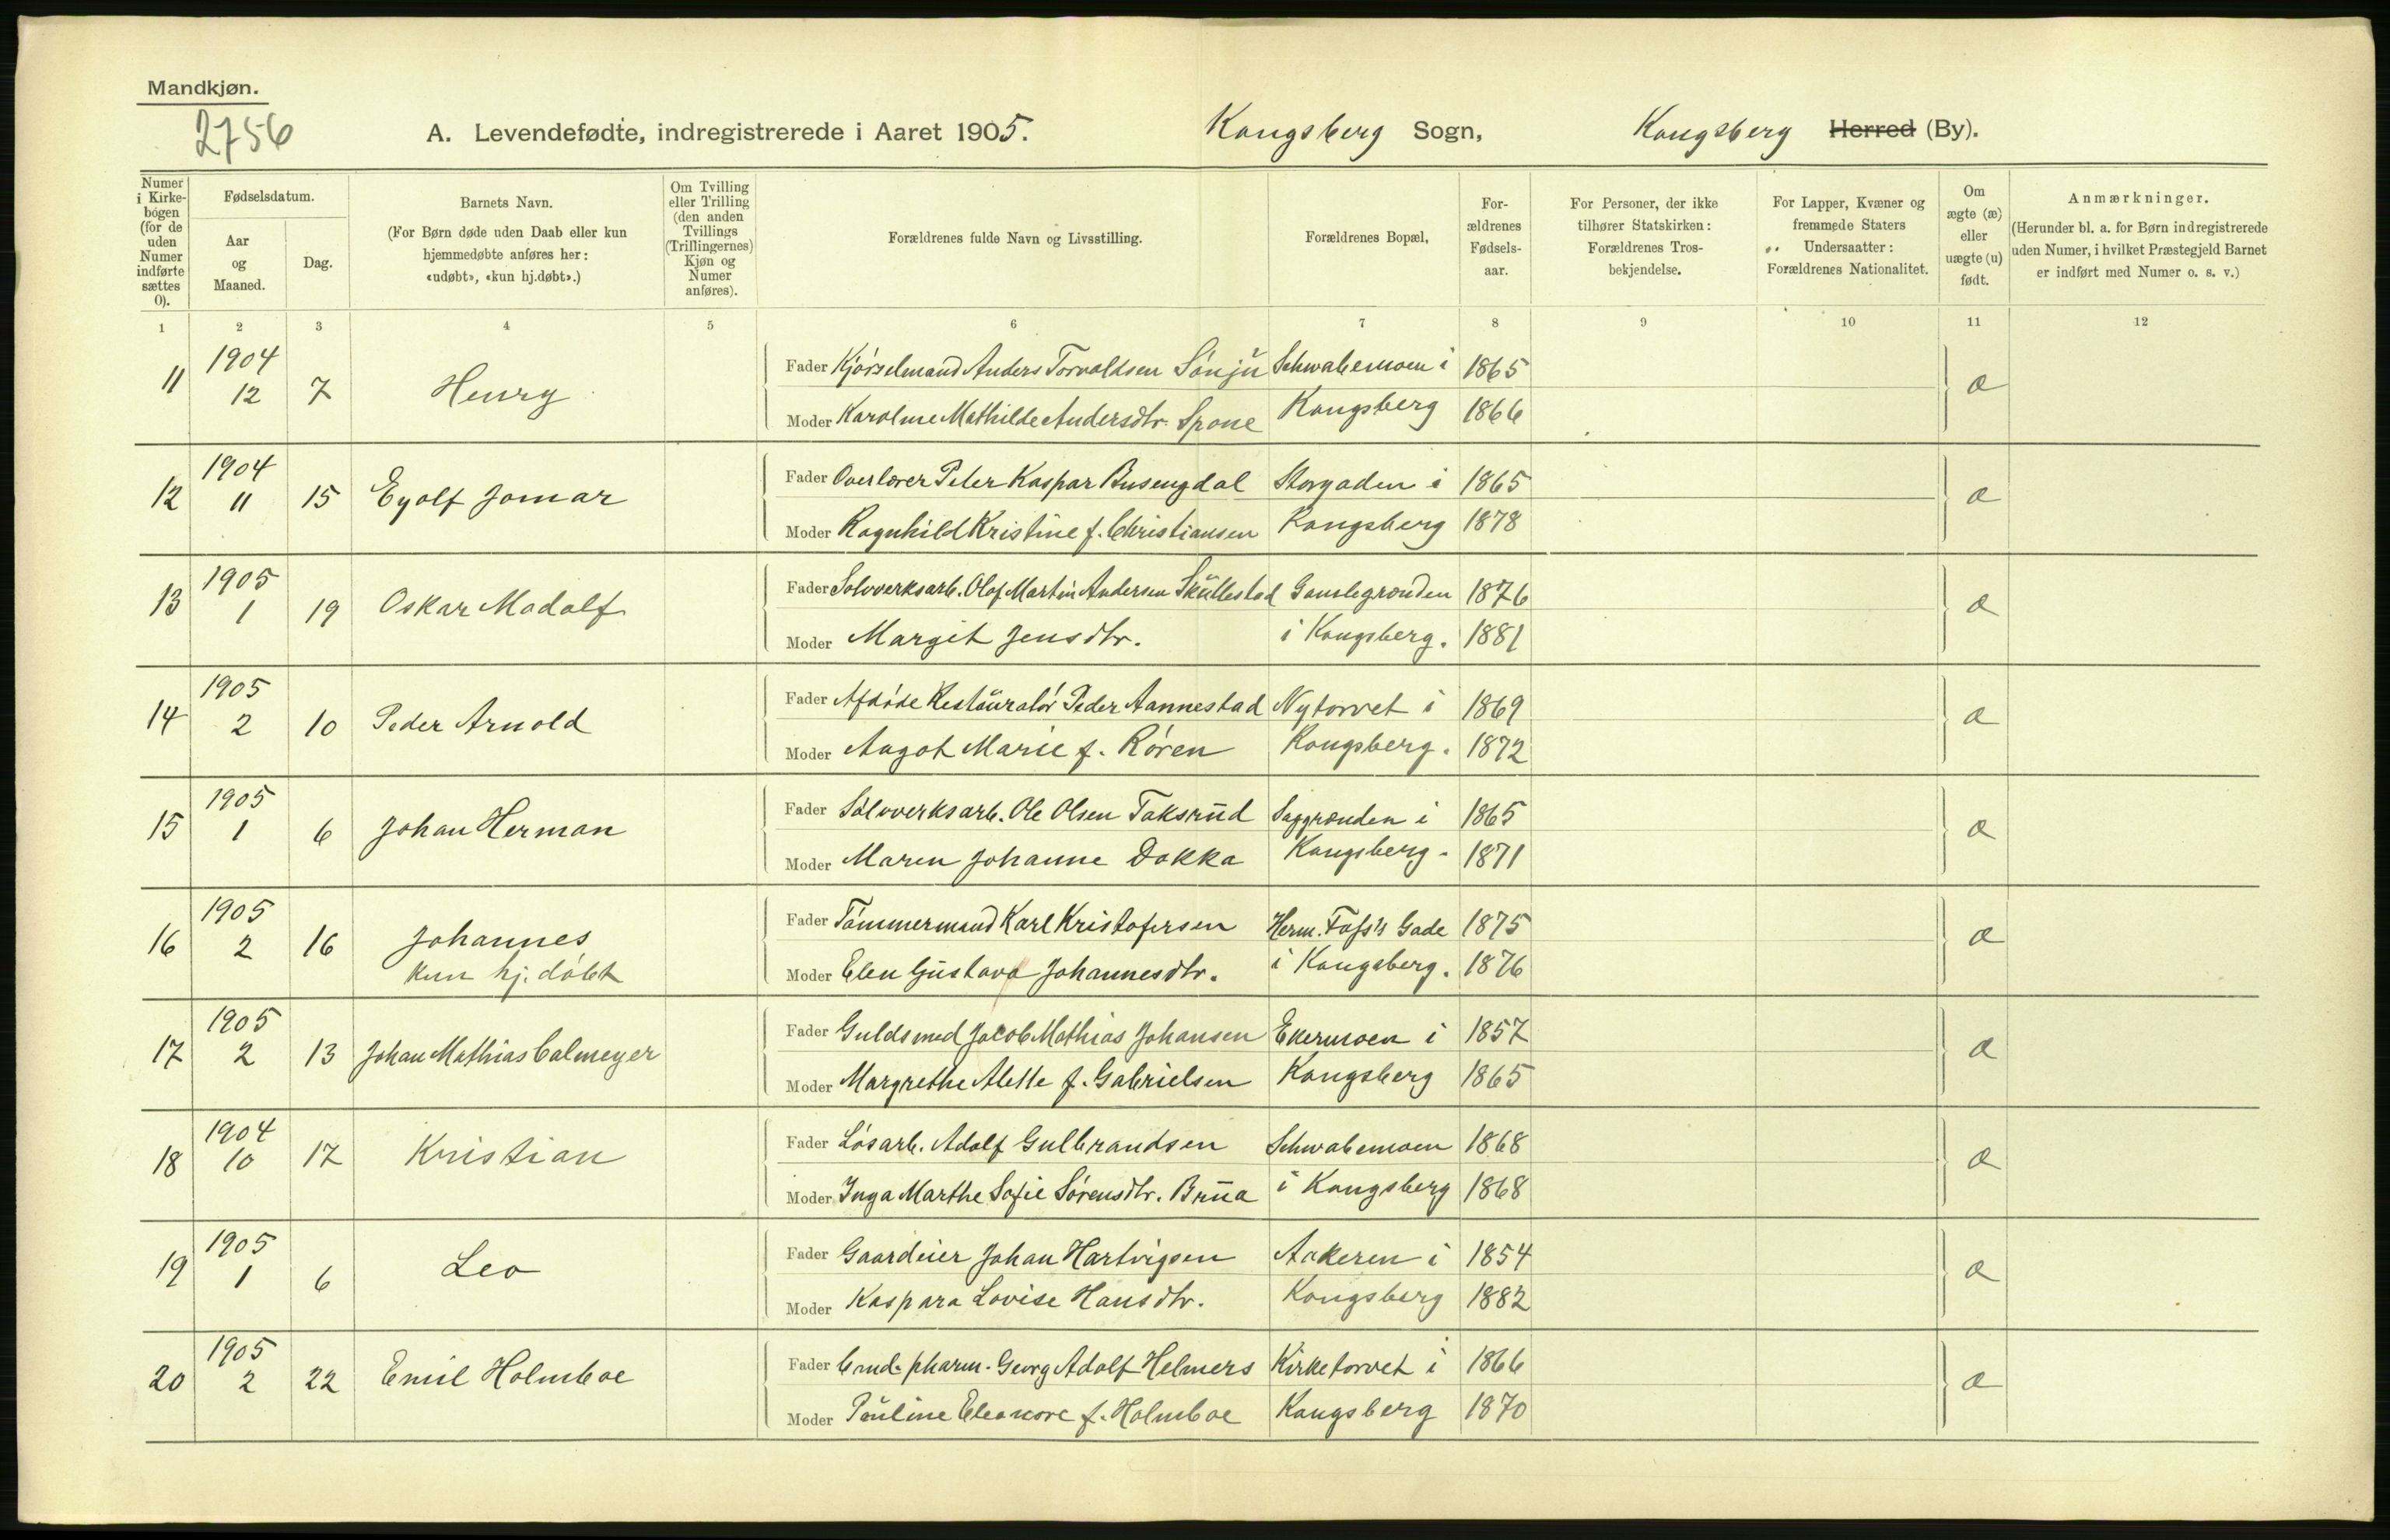 Mandkjøn.
2756
A. Levendefødte, indregistrerede i Aaret 1905. Kongsberg Sogn, Kongsberg Herred (By).
Numer i Kirkebogen (for de uden Numer indførte sættes 0).
Fødselsdatum.
Aar og Maaned.
Dag.
Barnets Navn.
(For Børn døde uden Daab eller kun hjemmedøbte anføres her: «udøbt», «kun hj.døbt».)
Om Tvilling eller Trilling (den anden Tvillings (Trillingernes) Kjøn og Numer anføres).
Forældrenes fulde Navn og Livsstilling.
Forældrenes Bopæl,
Forældrenes Fødselsaar.
For Personer, der ikke tilhører Statskirken: Forældrenes Trosbekjendelse.
For Lapper, Kvæner og fremmede Staters Undersaatter: Forældrenes Nationalitet.
Om ægte (æ) eller uægte (u) født.
Anmærkninger.
(Herunder bl. a. for Børn indregistrerede uden Numer, i hvilket Præstegjeld Barnet er indført med Numer o. s. v.)
1 2 3 4 5 6 7 8 9 10 11 12
11 1904 12 7 Henry Fader Kjørselmand Anders Torvaldsen Sønju Schwabemoen i 1865 æ
Moder Karoline Mathilde Andersdtr. Spone Kongsberg 1866
12 1904 11 15 Eyolf Jomar Fader Overlærer Peter Kaspar Busengdal Storgaden i 1865 æ
Moder Ragnhild Kristine f. Christiansen Kongsberg 1878
13 1905 1 19 Oskar Madolf Fader Sølvverksarb. Olaf Martin Andersen Skullestad Gamlegrænden 1876 æ
Moder Margit Jensdtr. i Kongsberg. 1881
14 1905 2 10 Peder Arnold Fader Afdøde Restauratør Peder Aannestad Nytorvet i 1869 æ
Moder Aagot Marie f. Røren Kongsberg. 1872
15 1905 1 6 Johan Herman Fader Sølvverksarb. Ole Olsen Taksrud Saggrænden i 1865 æ
Moder Maren Johanne Dokka Kongsberg. 1871
16 1905 2 16 Johannes Fader Tømmermand Karl Kristofersen Herm. Foss's Gade 1875 æ
kun hj. døbt Moder Elen Gustava Johannesdtr. i Kongsberg. 1876
17 1905 2 13 Johan Mathias Calmeyer Fader Guldsmed Jacob Mathias Johansen Ekermoen i 1857 æ
Moder Margrethe Alette f. Gabrielsen Kongsberg 1865
18 1904 10 17 Kristian Fader Løsarb. Adolf Gulbrandsen Schwabemoen 1868 æ
Moder Inga Marthe Sofie Sørensdtr. Brua i Kongsberg 1868
19 1905 1 6 Leo Fader Gaardeier Johan Hartvigsen Aakeren i 1854 æ
Moder Kaspara Lovise Hansdtr. Kongsberg 1882
20 1905 2 22 Emil Holmboe Fader Cand. pharm. Georg Adolf Helmers Kirketorvet i 1866 æ
Moder Pauline Eleonore f. Holmboe Kongsberg 1870